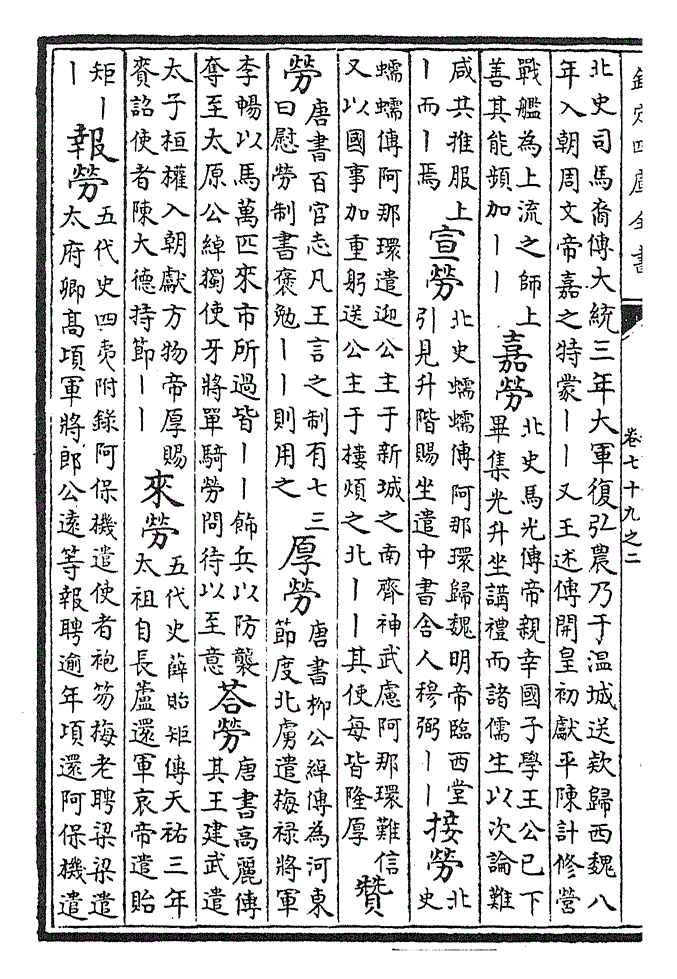 欽定四庫全書
卷七十九之二
北史司馬裔傳大統三年大軍復弘農乃于温城送欵歸西魏八
年入朝周文帝嘉之特蒙丨丨又王述傳開皇初獻平陳計修營
戰艦為上流之師上
善其能頻加丨丨
嘉勞
北史馬光傳帝親幸國子學王公已下
畢集光升坐講禮而諸儒生以次論難
咸共推服上
丨而丨焉
宣勞
北史蠕蠕傳阿那環歸魏明帝臨西堂
引見升階賜坐遣中書舍人穆弼丨丨
接勞
北
史
蠕蠕傳阿那環遣迎公主于新城之南齊神武慮阿那環難信
又以國事加重躬送公主于樓煩之北丨丨其使每皆隆厚
贊
勞
唐書百官志凡王言之制有七三
曰慰勞制書褒勉丨丨則用之
厚勞
唐書柳公綽傳為河東
節度北虜遣梅禄將軍
李暢以馬萬匹來市所過皆丨丨飭兵以防襲
奪至太原公綽獨使牙將單騎勞問待以至意
荅勞
唐書高麗傳
其王建武遣
太子桓權入朝獻方物帝厚賜
賚詔使者陳大德持節丨丨
來勞
五代史薛貽矩傳天祐三年
太祖自長蘆還軍哀帝遣貽
矩丨
丨
報勞
五代史四夷附錄阿保機遣使者袍笏梅老聘梁梁遣
太府卿高項軍將郎公遠等報聘逾年項還阿保機遣